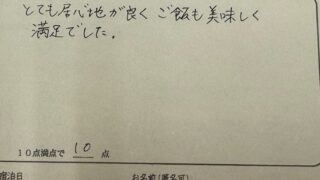 とても居心地が良く ご飯も美味しく
満足でした.
10点満点で 10 点
宿泊日 お名前(匿名可)